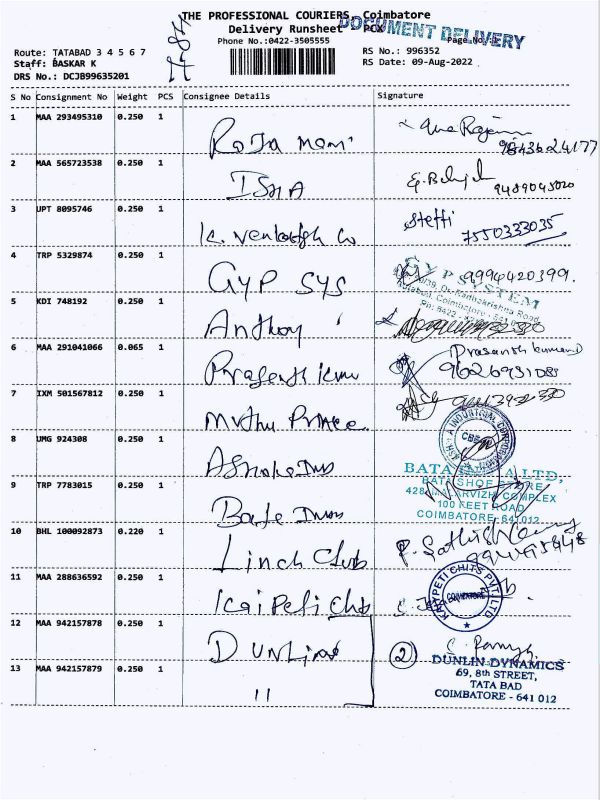 THE PROFESSIONAL COURIERS, Coimbatore
Delivery Runsheet PCX
DOCUMENT DELIVERY
Phone No.:0422-3505555
Page No.:1
Route: TATABAD 3 4 5 6 7
RS No.: 996352
Staff: BASKAR K
RS Date: 09-Aug-2022
DRS No.: DCJB99635201
S No Consignment No Weight PCS Consignee Details Signature
1 MAA 293495310 0.250 1 Roja mani 9843624177
2 MAA 565723538 0.250 1 ISHA 9489045020
3 UPT 8095746 0.250 1 K. Venkatesh Co Steffi 7550333035
4 TRP 5329874 0.250 1 GYP SYS 9994420399.
GYP SYSTEM
Dr. Radhakrishna Road
Tatabad, Coimbatore - 641 0
Ph: 0422 -
5 KDI 748192 0.250 1 Anthony
6 MAA 291041066 0.065 1 Prasanth Kum Prasanth kumar
7 IXM 501567812 0.250 1 Muthu Prince
8 UMG 924308 0.250 1 Ashoka Ind
A INDUSTRIAL CORPORA
CBE
9 TRP 7783015 0.250 1 Bata Ind
BATA LTD,
BATA SHOE STORE
COMPLEX
100 FEET ROAD
COIMBATORE-641 012
10 BHL 100092873 0.220 1 Linch Club P. Sathish
11 MAA 288636592 0.250 1 Kaipeti Chits
KHYPETI CHITS PVT. LTD
COIMBATORE
12 MAA 942157878 0.250 1 Dunlind 2
13 MAA 942157879 0.250 1 11
DUNLIN DYNAMICS
69, 8th STREET,
TATA BAD
COIMBATORE - 641 012